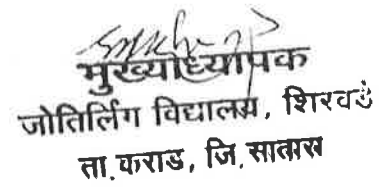 मुख्याध्यापक
जोतिर्लिंग विद्यालय, शिरवडे
ता.कराड, जि.सातारा